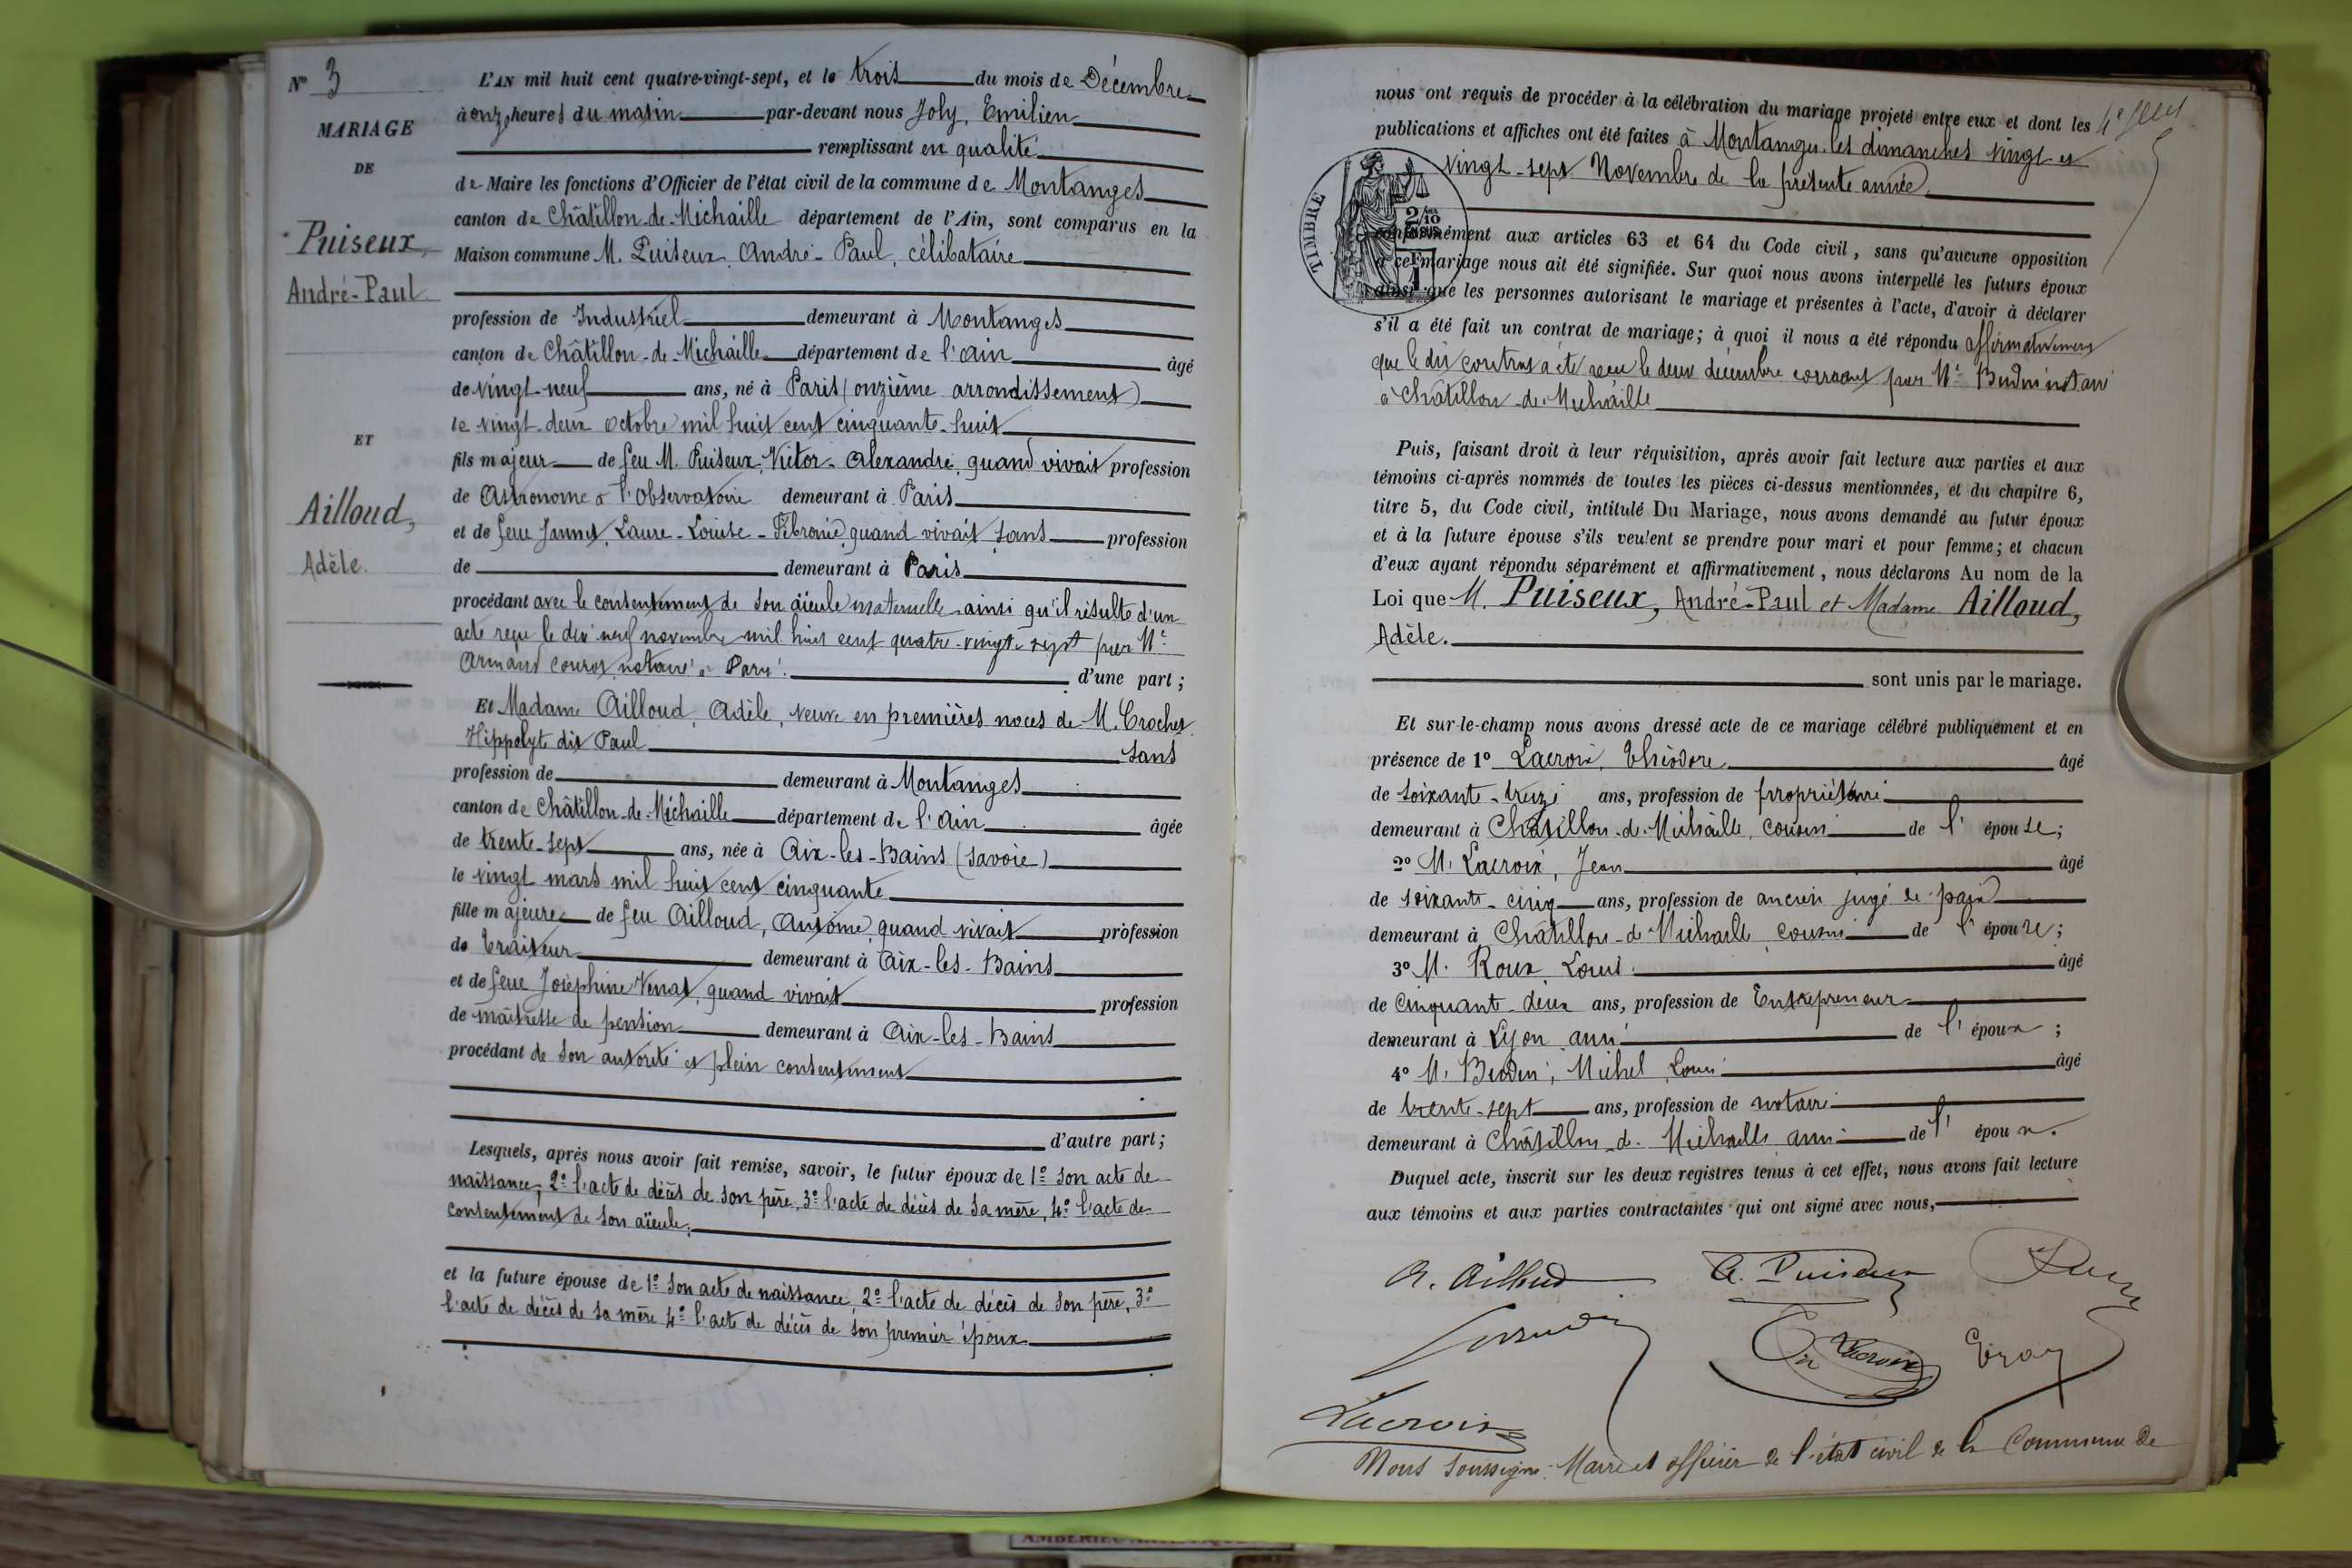 N° 3
MARIAGE
DE
Puiseux,
André-Paul
ET
Ailloud,
Adèle.
L'AN mil huit cent quatre-vingt-sept, et le trois du mois de Décembre
à onze heures du matin par-devant nous Joly, Emilien
remplissant en qualité
de Maire les fonctions d'Officier de l'état civil de la commune de Montanges
canton de Châtillon-de-Michaille département de l'Ain, sont comparus en la
Maison commune M. Puiseux, André-Paul, célibataire
profession de Industriel demeurant à Montanges
canton de Châtillon-de-Michaille département de l'Ain âgé
de vingt-neuf ans, né à Paris (onzième arrondissement)
le vingt-deux octobre mil huit cent cinquante-huit
fils majeur de feu M. Puiseux, Victor-Alexandre, quand vivait profession
de Astronome à l'Observatoire demeurant à Paris
et de feue Jannet, Laure-Louise-Fébronie, quand vivait sans profession
de demeurant à Paris
procédant avec le consentement de son aïeule maternelle ainsi qu'il résulte d'un
acte reçu le dix neuf novembre mil huit cent quatre-vingt-sept par Me
Armand notaire à Paris d'une part;
Et Madame Ailloud, Adèle, veuve en premières noces de M. Crochet
Hippolyte dit Paul sans
profession de demeurant à Montanges
canton de Châtillon-de-Michaille département de l'Ain âgée
de trente-sept ans, née à Aix-les-Bains (Savoie)
le vingt mars mil huit cent cinquante
fille majeure de feu Ailloud, Antoine, quand vivait profession
de Traiteur demeurant à Aix-les-Bains
et de feue Joséphine Venat, quand vivait profession
de maîtresse de pension demeurant à Aix-les-Bains
procédant de son autorité et plein consentement
d'autre part;
Lesquels, après nous avoir fait remise, savoir, le futur époux de 1° son acte de
naissance, 2° l'acte de décès de son père, 3° l'acte de décès de sa mère, 4° l'acte de
consentement de son aïeule;
et la future épouse de 1° son acte de naissance, 2° l'acte de décès de son père, 3°
l'acte de décès de sa mère 4° l'acte de décès de son premier époux
nous ont requis de procéder à la célébration du mariage projeté entre eux et dont les
publications et affiches ont été faites à Montanges les dimanches vingt et
vingt-sept Novembre de la présente année
TIMBRE
2/10
conformément aux articles 63 et 64 du Code civil, sans qu'aucune opposition
à ce mariage nous ait été signifiée. Sur quoi nous avons interpellé les futurs époux
ainsi que les personnes autorisant le mariage et présentes à l'acte, d'avoir à déclarer
s'il a été fait un contrat de mariage; à quoi il nous a été répondu affirmativement
que le dit contrat a été reçu le deux décembre courant par Me Budin notaire
à Châtillon-de-Michaille
Puis, faisant droit à leur réquisition, après avoir fait lecture aux parties et aux
témoins ci-après nommés de toutes les pièces ci-dessus mentionnées, et du chapitre 6,
titre 5, du Code civil, intitulé Du Mariage, nous avons demandé au futur époux
et à la future épouse s'ils veulent se prendre pour mari et pour femme; et chacun
d'eux ayant répondu séparément et affirmativement, nous déclarons Au nom de la
Loi que M. Puiseux, André-Paul et Madame Ailloud,
Adèle.
sont unis par le mariage.
Et sur-le-champ nous avons dressé acte de ce mariage célébré publiquement et en
présence de 1° Lacroix, Théodore âgé
de soixante-treize ans, profession de propriétaire
demeurant à Châtillon-de-Michaille, cousin de l'épouse;
2° M. Lacroix, Jean âgé
de soixante-cinq ans, profession de ancien juge de paix
demeurant à Châtillon-de-Michaille cousin de l'épouse;
3° M. Roux Louis âgé
de cinquante-deux ans, profession de Entrepreneur
demeurant à Lyon ami de l'époux;
4° M. Budin, Michel Louis âgé
de trente-sept ans, profession de notaire
demeurant à Châtillon-de-Michaille ami de l'époux.
Duquel acte, inscrit sur les deux registres tenus à cet effet, nous avons fait lecture
aux témoins et aux parties contractantes qui ont signé avec nous,
A. Ailloud A. Puiseux
Lacroix
Lacroix
Nous soussigné Maire et officier de l'état civil de la Commune de